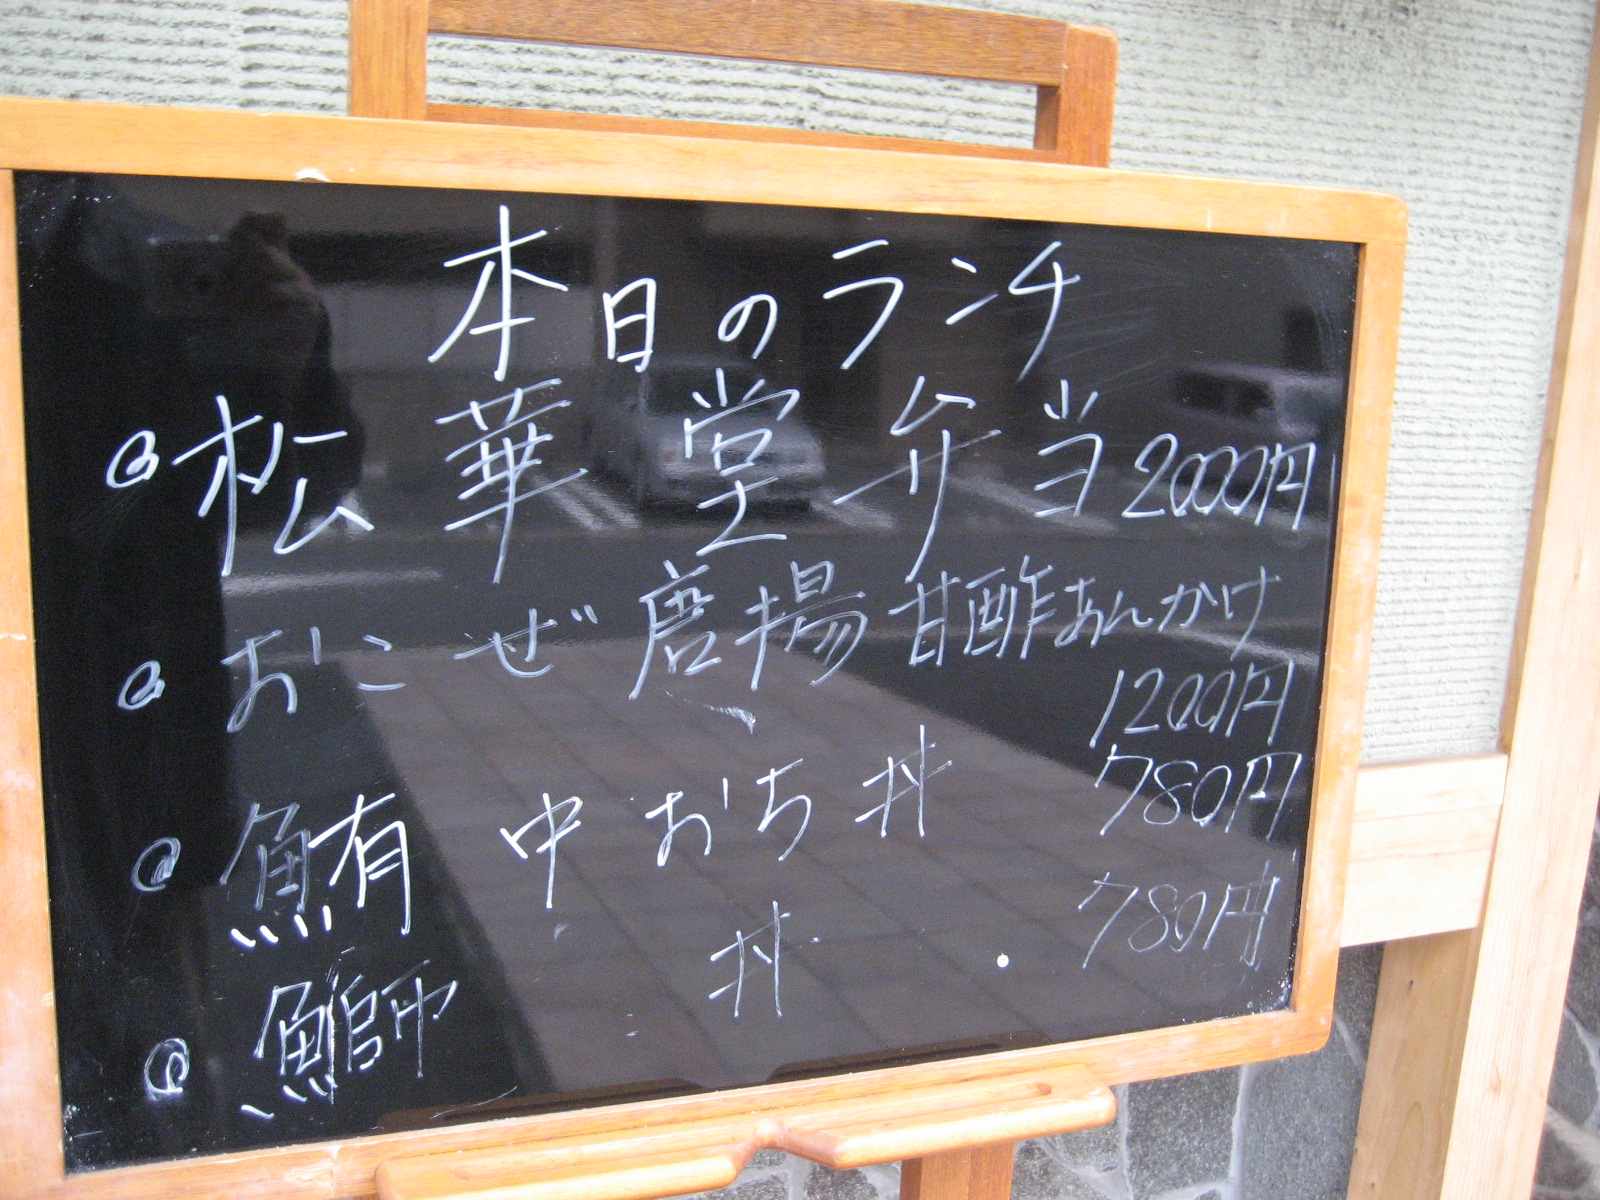 本日のランチ
松華堂弁当 2000円
おこぜ唐揚 甘酢あんかけ
1200円
鮪中おち丼 780円
鰤丼 780円